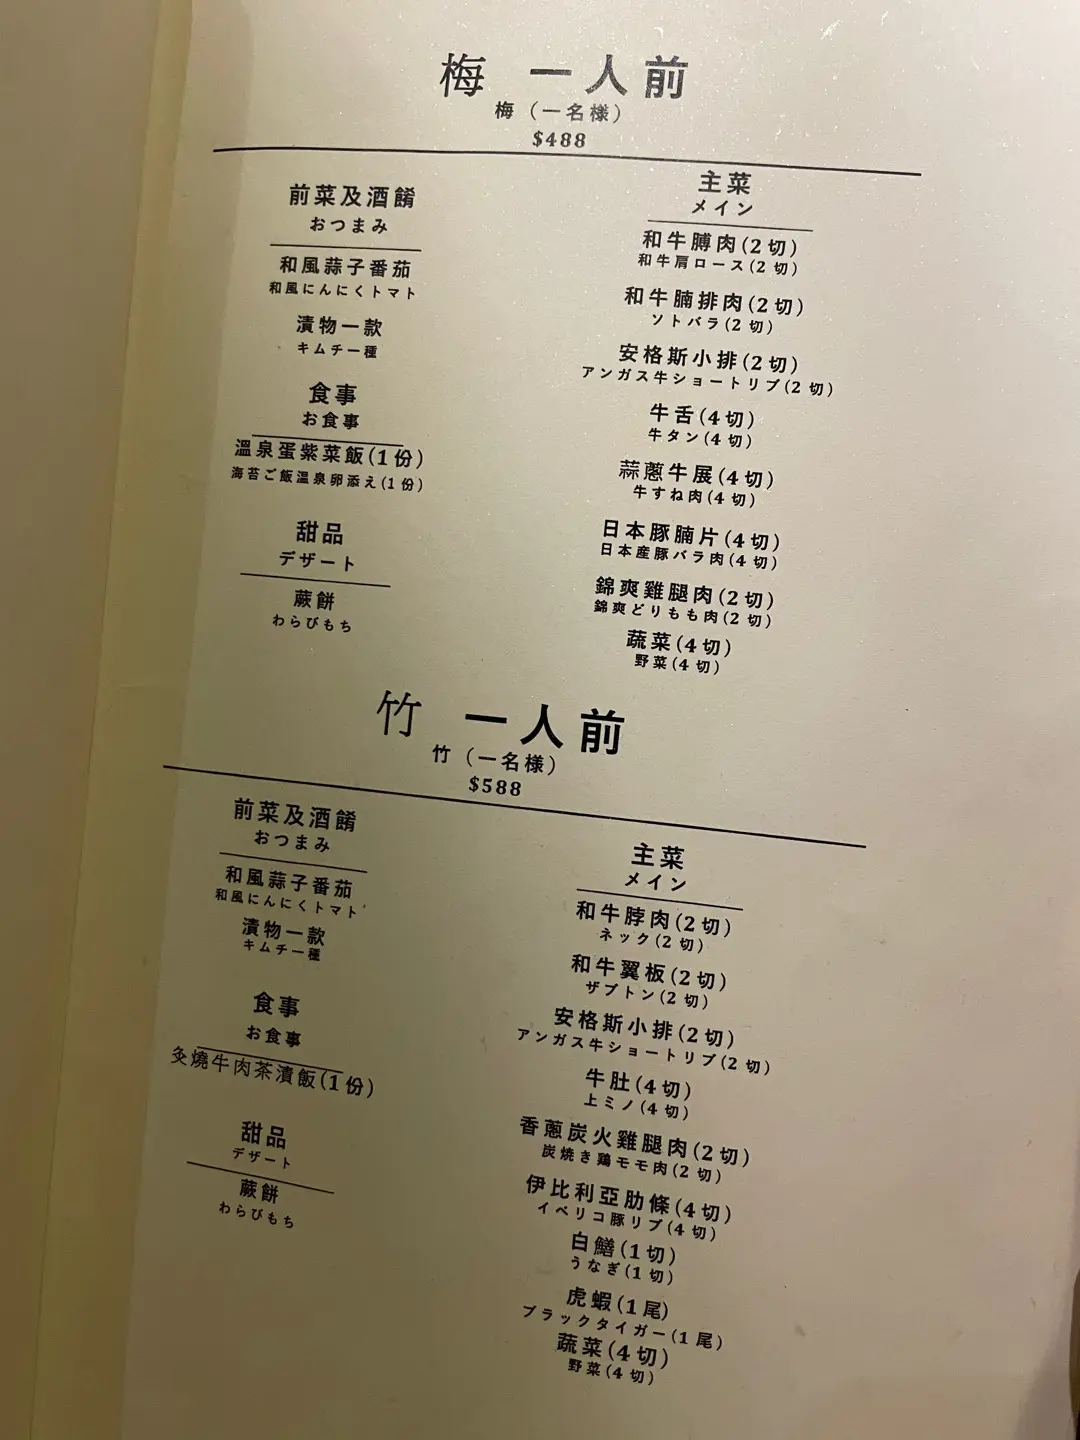 梅 一人前
梅（一名様）
$488
前菜及酒餚
おつまみ
和風蒜子番茄
和風にんにくトマト
漬物一款
キムチ一種
食事
お食事
溫泉蛋紫菜飯(1份)
海苔ご飯温泉卵添え(1份)
甜品
デザート
蕨餅
わらびもち
主菜
メイン
和牛膊肉(2切)
和牛肩ロース(2切)
和牛腩排肉(2切)
ソトバラ(2切)
安格斯小排(2切)
アンガス牛ショートリブ(2切)
牛舌(4切)
牛タン(4切)
蒜蔥牛展(4切)
牛すね肉(4切)
日本豚腩片(4切)
日本産豚バラ肉(4切)
錦爽雞腿肉(2切)
錦爽どりもも肉(2切)
蔬菜(4切)
野菜(4切)
竹 一人前
竹（一名様）
$588
前菜及酒餚
おつまみ
和風蒜子番茄
和風にんにくトマト
漬物一款
キムチ一種
食事
お食事
灸燒牛肉茶漬飯(1份)
甜品
デザート
蕨餅
わらびもち
主菜
メイン
和牛脖肉(2切)
ネック(2切)
和牛翼板(2切)
ザブトン(2切)
安格斯小排(2切)
アンガス牛ショートリブ(2切)
牛肚(4切)
上ミノ(4切)
香蔥炭火雞腿肉(2切)
炭焼き鶏モモ肉(2切)
伊比利亞肋條(4切)
イベリコ豚リブ(4切)
白鱔(1切)
うなぎ(1切)
虎蝦(1尾)
ブラックタイガー(1尾)
蔬菜(4切)
野菜(4切)